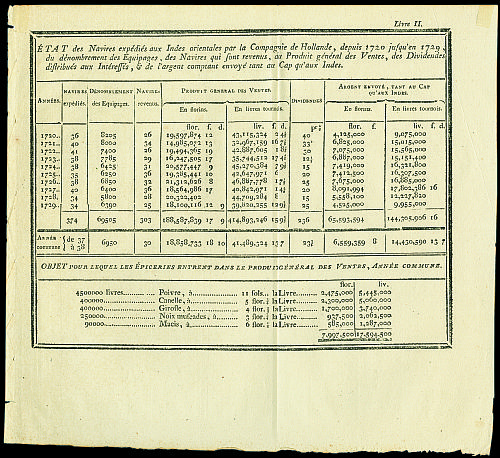 Livre II.
ÉTAT des Navires expédiés aux Indes orientales par la Compagnie de Hollande, depuis 1720 jusqu'en 1729,
du dénombrement des Equipages, des Navires qui sont revenus, au Produit général des Ventes, des Dividendes
distribués aux Intéressés, & de l'argent comptant envoyé tant au Cap qu'aux Indes.
ANNÉES. NAVIRES expédiés. DÉNOMBREMENT des Equipages. NAVIRES revenus. PRODUIT GÉNÉRAL DES VENTES. DIVIDENDES ARGENT ENVOYÉ, TANT AU CAP QU'AUX INDES.
En florins. En livres tournois. En florins. En livres tournois.
flor. f. d. liv. f. d. flor. f. liv. f. d.
1720.. 36 8205 26 19,597,874 12 43,115,324 40 4,125,000 9,075,000
1721.. 40 8000 34 14,985,072 13 32,967,159 16 33 6,825,000 15,015,000
1722.. 41 7400 26 19,494,365 19 42,887,605 30 7,075,000 15,565,000
1723.. 38 7785 29 16,247,505 17 35,744,512 12 6,887,000 15,151,400
1724.. 38 6425 31 20,577,447 9 45,270,384 15 7,419,000 16,321,800
1725.. 35 6250 36 19,385,441 10 42,647,971 6 20 7,412,500 16,307,500
1726.. 38 6850 32 21,312,626 8 46,887,778 25 7,675,000 16,885,000
1727.. 40 6400 36 18,564,986 17 40,842,971 20 8,091,994 17,802,386 16
1728.. 34 5800 28 20,322,402 44,709,284 8 15 5,558,100 12,227,820
1729.. 34 6390 25 18,100,116 12 9 39,820,255 25 4,525,000 9,955,000
374 69505 303 188,587,839 17 9 414,893,246 236 65,593,594 144,305,906 16
Année commune { de 37 à 38 6950 30 18,858,733 18 10 41,489,324 13 7 6,559,359 8 14,430,590 13 7
OBJET POUR LEQUEL LES ÉPICERIES ENTRENT DANS LE PRODUIT GÉNÉRAL DES VENTES, ANNÉE COMMUNE.
flor. liv.
4500000 livres Poivre, à 11 sols la Livre 2,475,000 5,445,000
400000 Canelle, à 5 flor. la Livre 2,300,000 5,060,000
400000 Girofle, à 4 flor. la Livre 1,700,000 3,740,000
250000 Noix muscades, à 3 flor. la Livre 937,500 2,062,500
90000 Macis, à 6 flor. la Livre 585,000 1,287,000
7,997,500 17,594,500